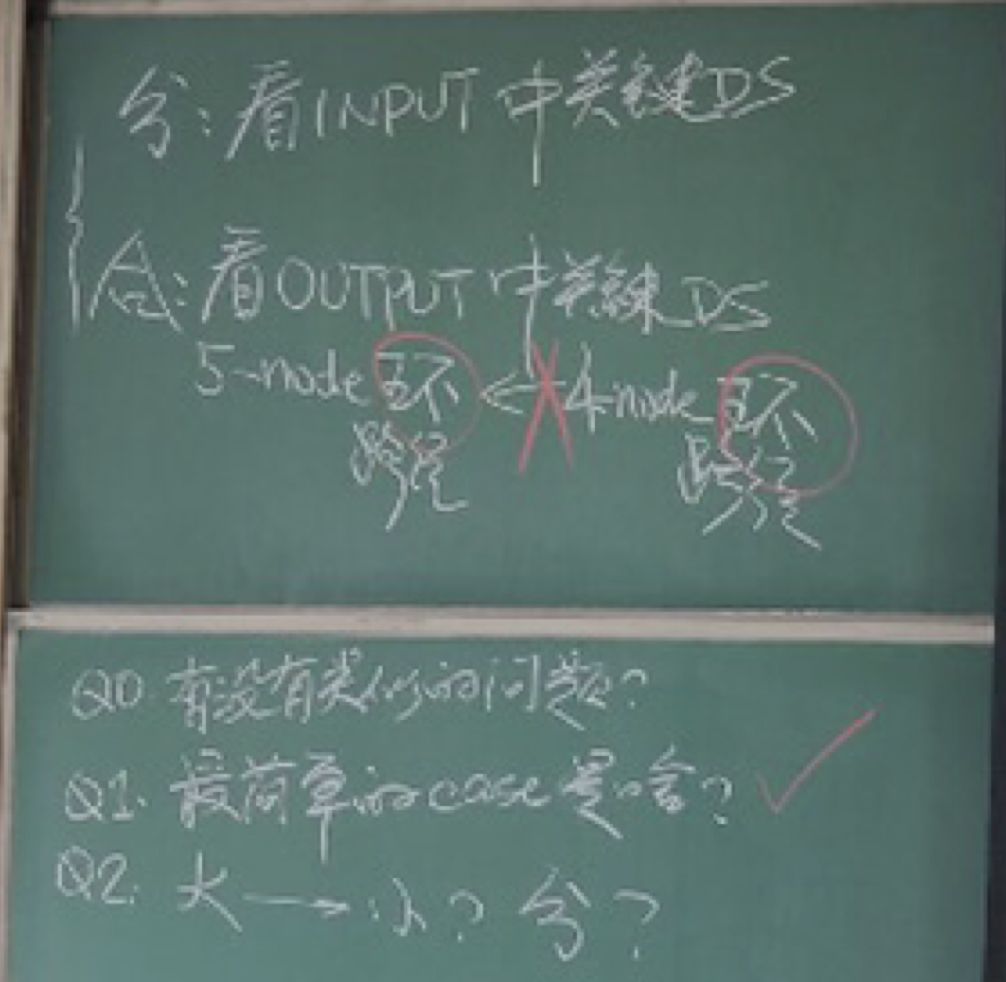 分:看INPUT中关键DS
合:看OUTPUT中关键DS
5-node环 ← 4-node环
路径 路径
Q0 有没有类似的问题?
Q1. 最简单的case是啥?
Q2. 大→小?分?